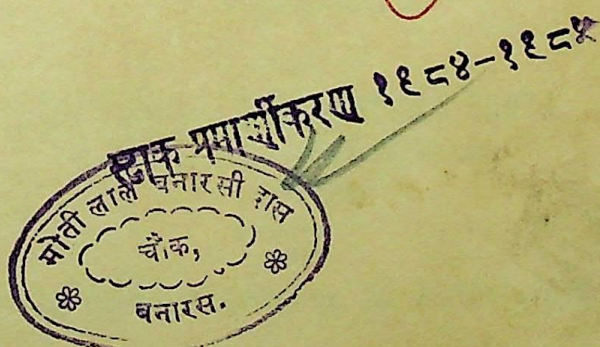 स्टाक प्रमाणीकरण १९८४-१९८५
मोती लाल बनारसी दास
चौक,
बनारस.